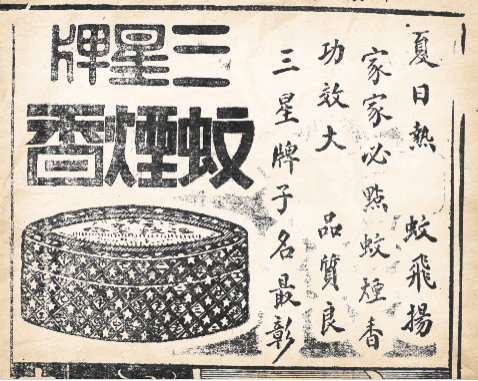 夏日熱 蚊飛揚
家家必點蚊煙香
功效大 品質良
三星牌子名最彰
三星牌
蚊煙香